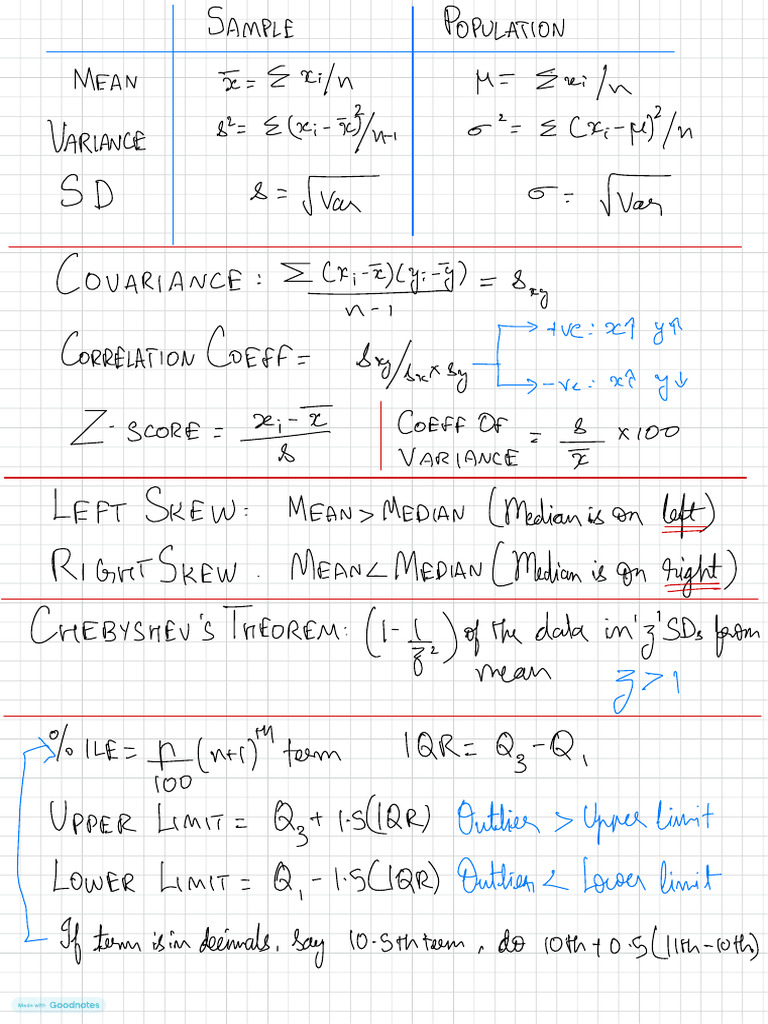 SAMPLE POPULATION
MEAN x̄ = Σ xi/n μ = Σxi/n
VARIANCE s² = Σ(xi - x̄)²/n-1 σ² = Σ (xi - μ)²/n
SD s = √Var σ = √Var
COVARIANCE: Σ(xi - x̄)(yi - ȳ)/n-1 = sxy
CORRELATION COEFF = sxy/sx × sy
+ve: x↑ y↑
-ve: x↑ y↓
Z-SCORE = xi - x̄/s
COEFF OF VARIANCE = s/x̄ × 100
LEFT SKEW: MEAN > MEDIAN (Median is on left)
RIGHT SKEW. MEAN < MEDIAN (Median is on right)
CHEBYSHEV'S THEOREM: (1 - 1/z²) of the data in 'z' SDs from
mean z > 1
%ILE = n/100 (n+1)th term IQR = Q3 - Q1
UPPER LIMIT = Q3 + 1.5(IQR) Outlier > Upper limit
LOWER LIMIT = Q1 - 1.5(IQR) Outlier < Lower limit
If term is in decimals, say 10.5th term, do 10th + 0.5(11th - 10th)
Made with Goodnotes